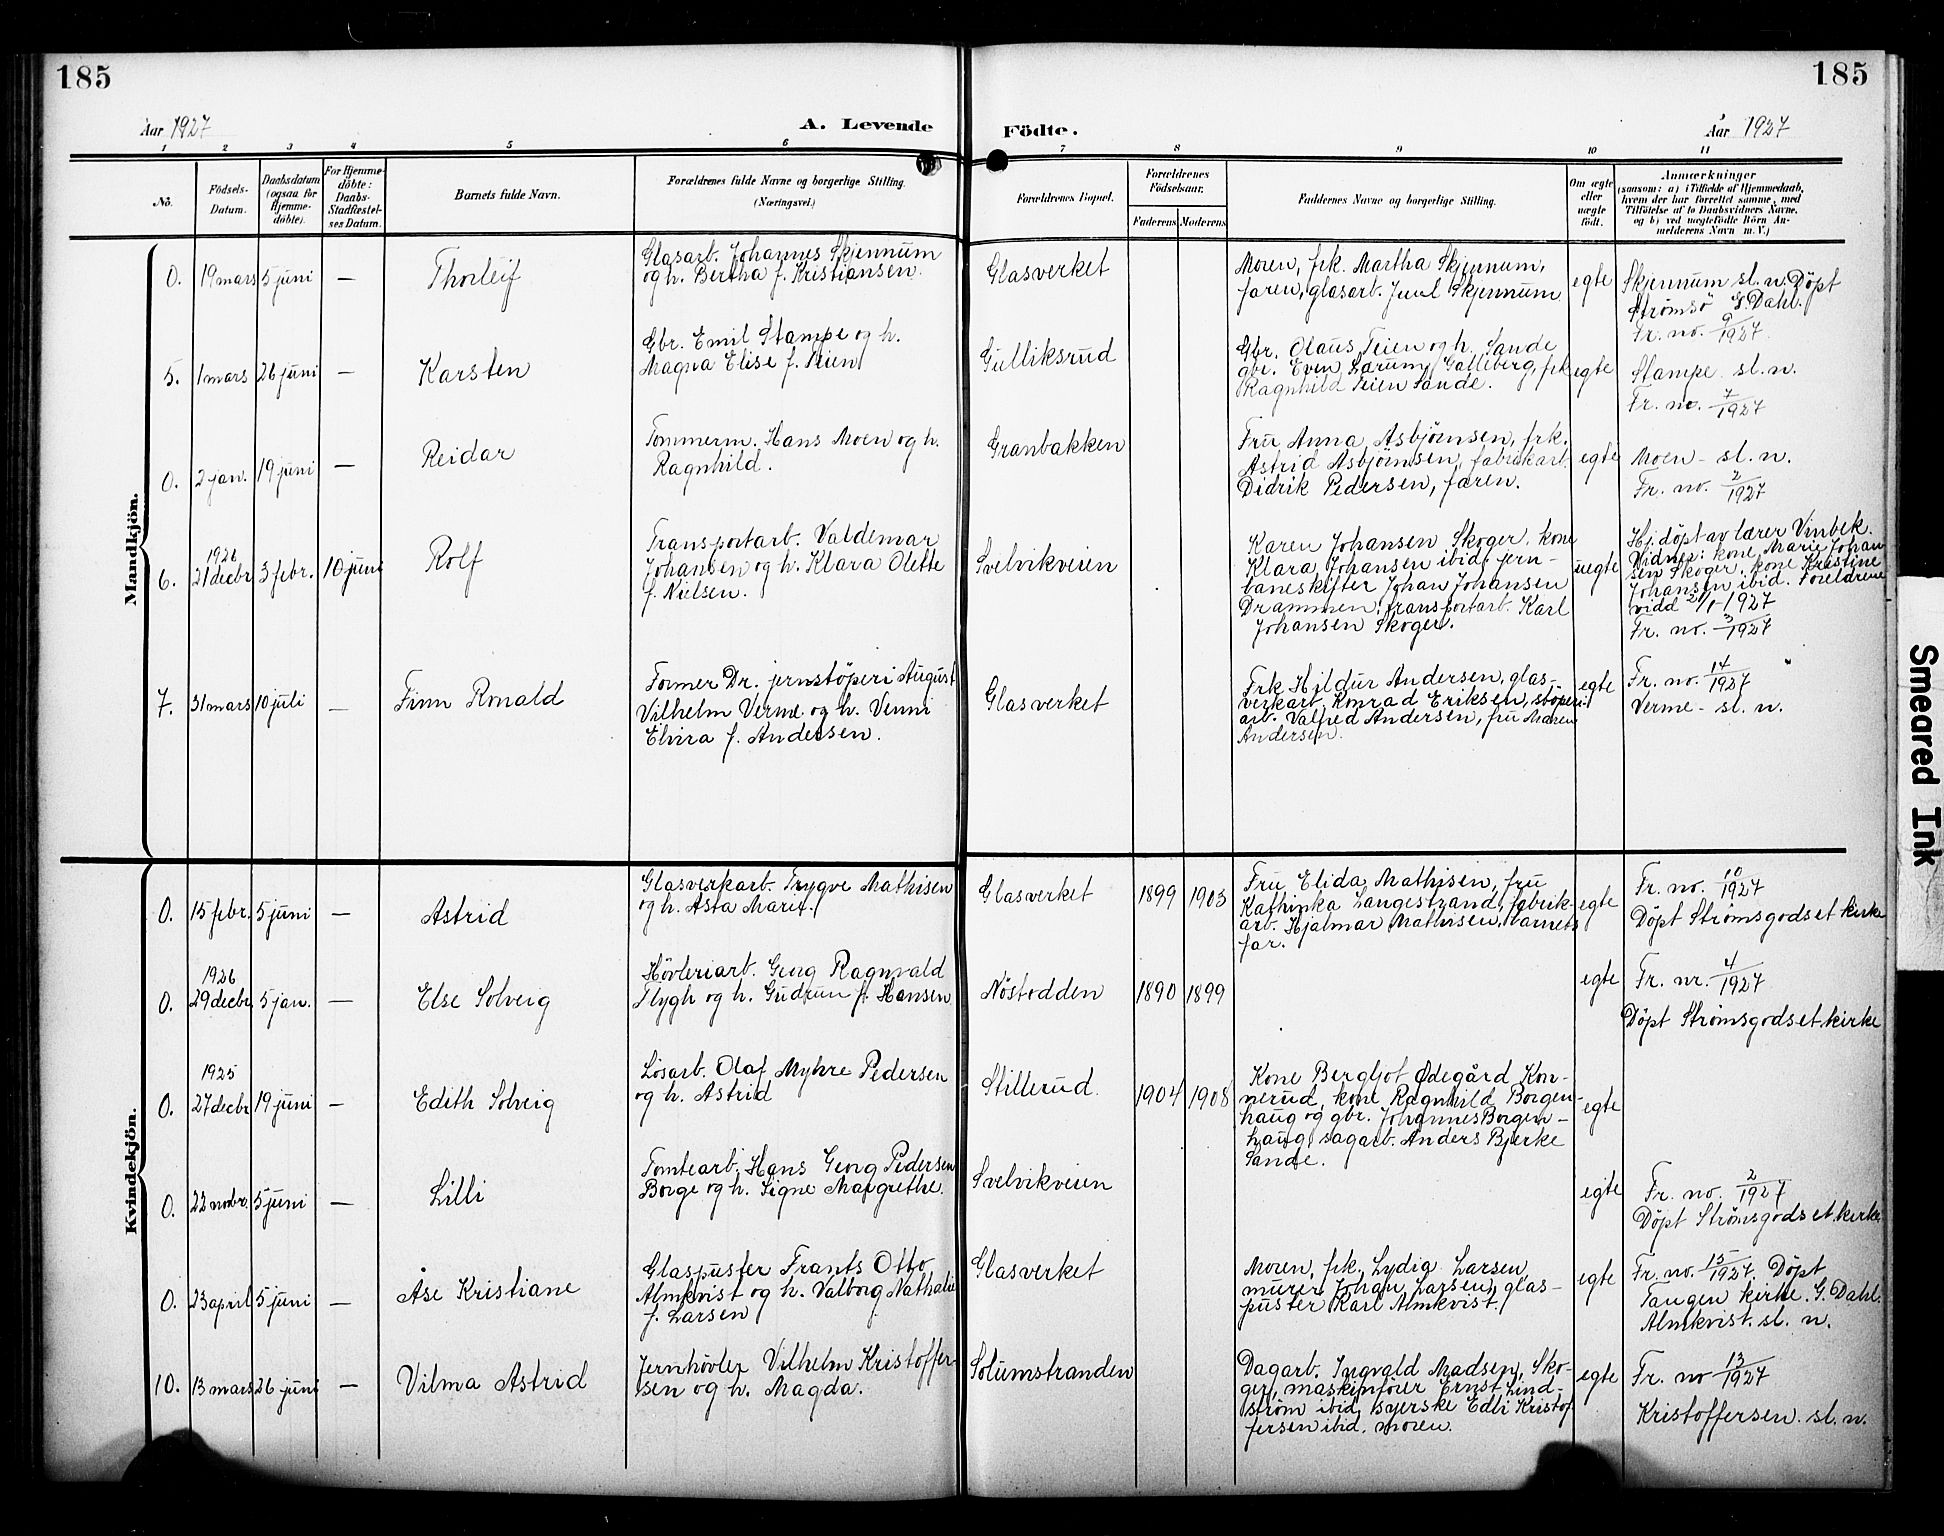 185
185
Aar 1927
A. Levende
Födte.
Aar 1927
1 2 3 4 5 6 7 8 9 10 11
No.
Födsels-
Datum.
Daabsdatum
(ogsaa for
Hjemme-
döbte).
For Hjemme-
döbte:
Daabs-
Stadfæstel-
ses Datum.
Barnets fulde Navn.
Forældrenes fulde Navne og borgerlige Stilling.
(Næringsvei.)
Forældrenes Bopæl.
Forældrenes
Födselsaar.
Faderens Moderens
Faddernes Navne og borgerlige Stilling.
Om ægte
eller
uægte
födt.
Anmærkninger
(saasom: a) i Tilfælde af Hjemmedaab,
hvem der har forrettet samme, med
Tilföielse af to Daabsvidners Navne,
og b) ved uægtefödte Börn An-
melderens Navn m. V.)
Mandkjön.
0. 19 mars 5 juni — Thorleif
Glasarb. Johannes Skjennum
og h. Bertha f. Kristiansen.
Glasverket
Moren, frk. Martha Skjennum,
faren, glasarb. Juul Skjennum
egte
Skjennum sl. n. Döpt
Strömsö G. Dahl.
Fr. no. 9/1927
5. 1 mars 26 juni — Karsten
Gbr. Emil Stampe og h.
Magna Elise f. Teien
Gulliksrud
Gbr. Olaus Teien og h. Sande
gbr. Even Garum, Galleberg, frk
Ragnhild Teien Sande.
egte
Stampe sl. n.
Fr. no. 7/1927
0. 2 jan. 19 juni — Reidar
Tommerm. Hans Moen og h.
Ragnhild.
Granbakken
Fru Anna Asbjörnsen, frk.
Astrid Asbjörnsen, fabrikarb.
Didrik Pedersen, faren.
egte
Moen - sl. n.
Fr. no. 2/1927
6. 1926 21 decbr 3 febr. 10 juni Rolf
Transportarb. Valdemar
Johansen og h. Klara Olette
f. Nielsen.
Svelvikveien
Karen Johansen Skoger, kone
Klara Johansen ibid, jern-
baneskifter Johan Johansen
Drammen, transportarb. Karl
Johansen Skoger.
uegte
Hj. döpt av lærer Vinbek.
Vidner: kone Marie Johan
sen Skoger, kone Kristine
Johansen ibid. Foreldrene
vidd 21/1-1927
Fr. no. 3/1927
7. 31 mars 10 juli — Finn Ronald
Former Dr. jernstöperi August
Vilhelm Verme og h. Venni
Elvira f. Andersen.
Glasverket
Frk Hildur Andersen, glas-
verkarb. Konrad Eriksen, stöperi-
arb. Valfred Andersen, fru Maren
Andersen.
egte
Fr. no. 14/1927
Verme - sl. n.
Kvindekjön.
0. 15 febr. 5 juni — Astrid
Glasverkarb. Trygve Mathisen
og h. Asta Marie.
Glasverket 1899 1903
Fru Elida Mathisen, fru
Kathinka Langestrand, fabrik-
arb. Hjalmar Mathisen, barnets
far.
egte
Fr. no. 10/1927
Döpt Strömsgodset kirke
0. 1926 29 decbr 5 jan. — Else Solveig
Hövleriarb. Georg Ragnvald
Flygh og h. Gudrun f. Hansen
Nöstodden 1890 1899
egte
Fr. nr. 4/1927
Döpt Strömsgodset kirke
0. 1925 27 decbr 19 juni — Edith Solveig
Lösarb. Olaf Myhre Pedersen
og h. Astrid
Stillerud. 1904 1908
Kone Bergljot Ödegård Kon-
nerud, kone Ragnhild Borgen-
haug og gbr. Johannes Borgen-
haug, sagarb. Anders Bjerke
Sande.
egte
0. 22 novbr. 5 juni — Lilli
Tomtearb. Hans Georg Pedersen
Borge og h. Signe Margrethe.
Svelvikveien
egte
Fr. no. 2/1927
Döpt Strömsgodset kirke
0. 23 april 5 juni — Åse Kristiane
Glaspuster Frants Otto
Almkvist og h. Valborg Nathalie
f. Larsen
Glasverket
Moren, frk. Lydia Larsen
murer Johan Larsen, glas-
puster Karl Almkvist.
egte
Fr. no. 15/1927. Döpt
Tangen kirke. G. Dahl.
Almkvist. sl. n.
10. 13 mars 26 juni — Vilma Astrid
Jernhövler Vilhelm Kristoffer-
sen og h. Magda.
Solumstranden
Dagarb. Ingvald Madsen, Sko-
ger, maskinförer Ernst Lind-
ström ibid, syerske Edli Kristof
fersen ibid. moren.
egte
Fr. no 13/1927
Kristoffersen. sl. n.
Smeared Ink